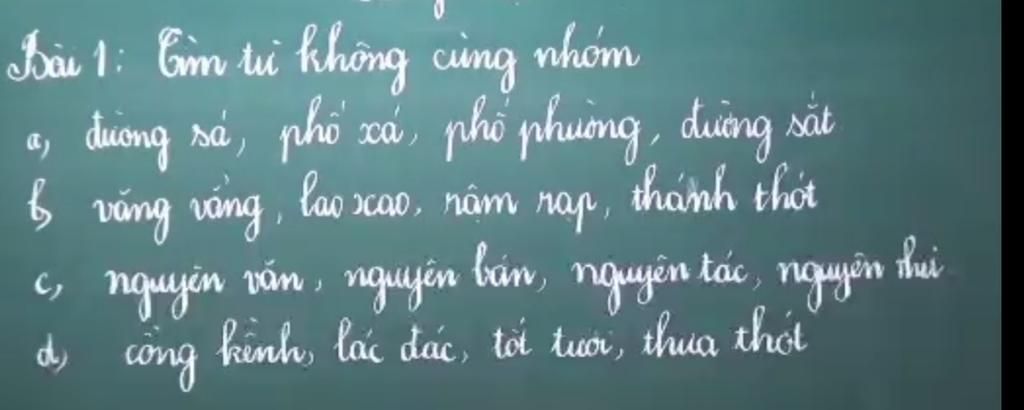 Bài 1: Tìm từ không cùng nhóm
a, đường sá, phố xá, phố phường, đường sắt
b, văng vẳng, lao xao, rậm rạp, thánh thót
c, nguyên văn, nguyên bản, nguyên tác, nguyên
d, cồng kềnh, lác đác, tốt tươi, thưa thớt